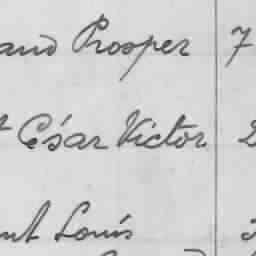 and Prosper 7
César Victor
Louis